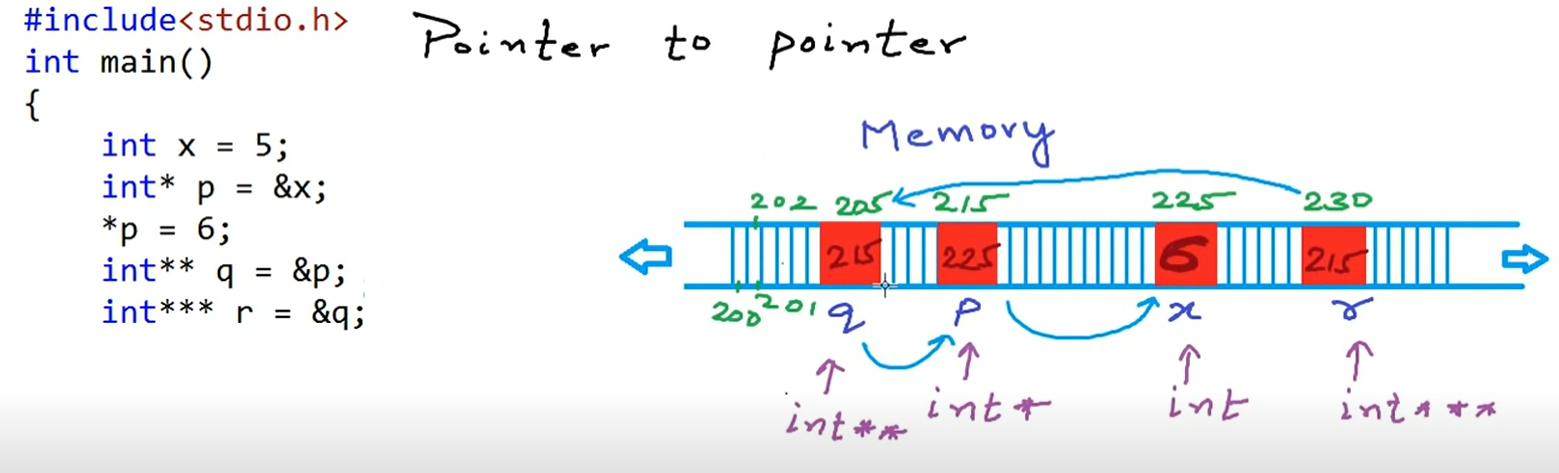 #include<stdio.h>
int main()
{
int x = 5;
int* p = &x;
*p = 6;
int** q = &p;
int*** r = &q;
Pointer to pointer
Memory
202 205 215 225 230
215 225 6 215
200 201 q p x r
int** int* int int***